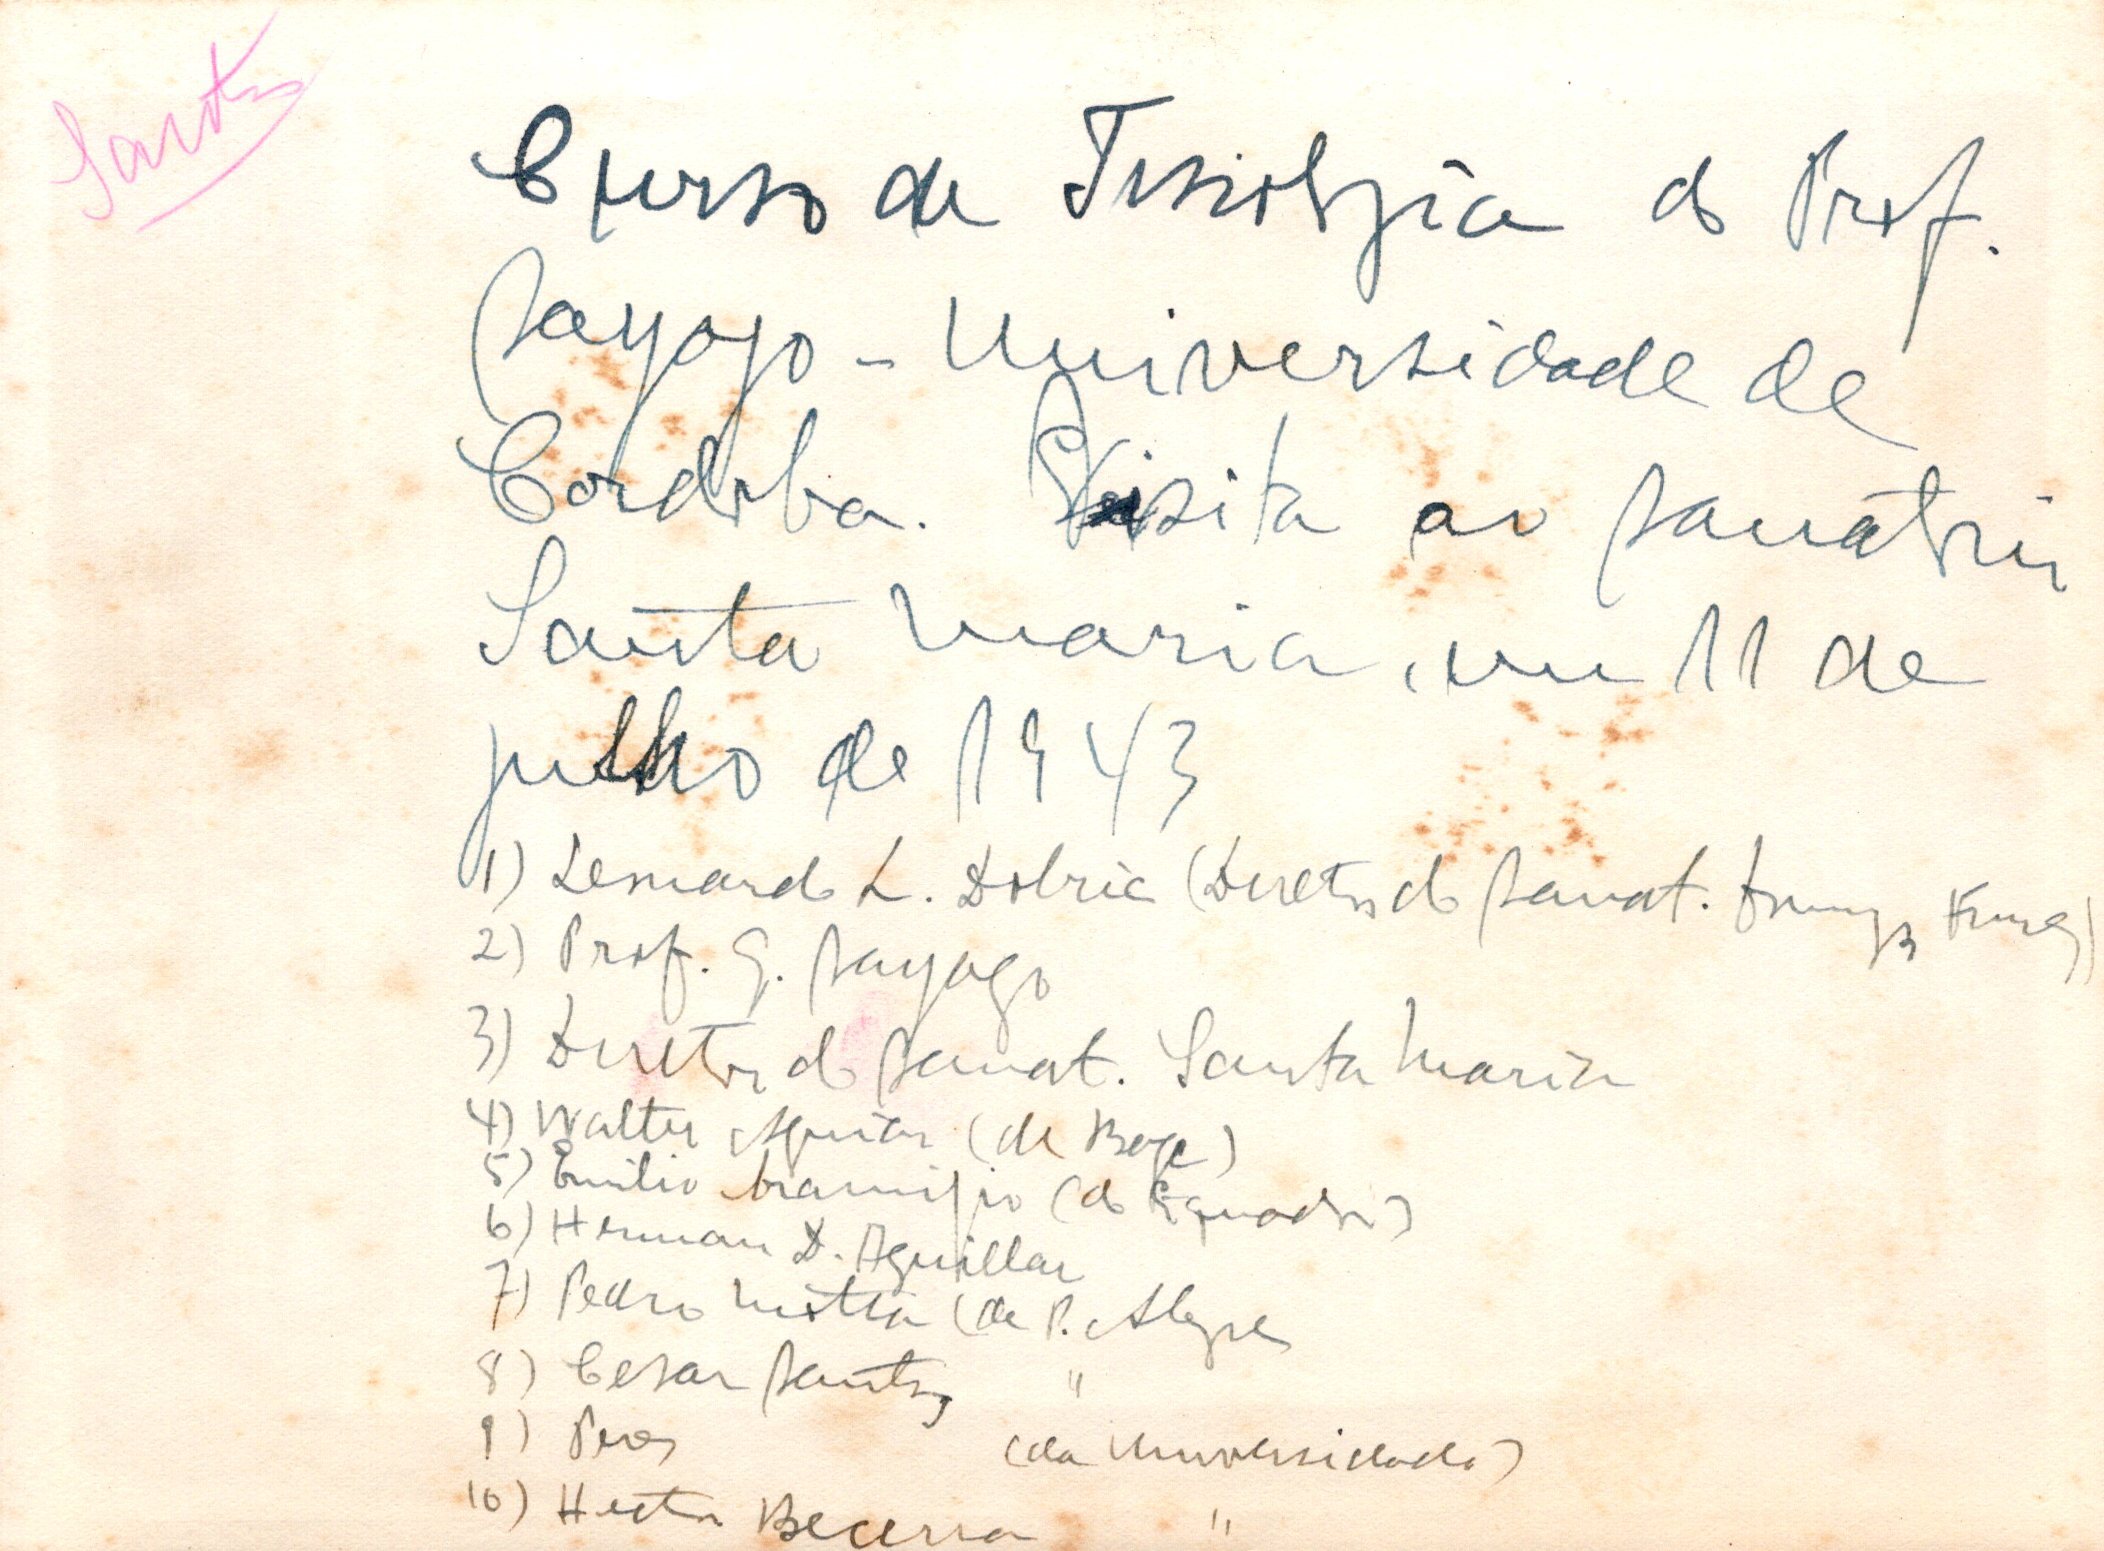 Santos
Curso de Tisiologia do Prof.
Sayago - Universidade de
Cordoba. Visita ao Sanatorio
Santa Maria, em 11 de
julho de 1943
1) Leonardo L. Dobric (Diretor do Sanat.
2) Prof. G. Sayago
3) Diretor do Sanat. Santa Maria
4) Walter Aguiar (de Bagé)
5) Emilio (do Equador)
6) Herman D. Aguillar
7) Pedro (de P. Alegre)
8) Cesar Santos "
9) (da Universidade)
10) Hector Becerra "